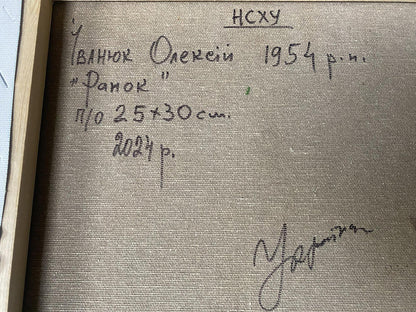 НСХУ
Іванюк Олексій 1954 р.н.
"Ранок"
п/о 25х30 см.
2024 р.